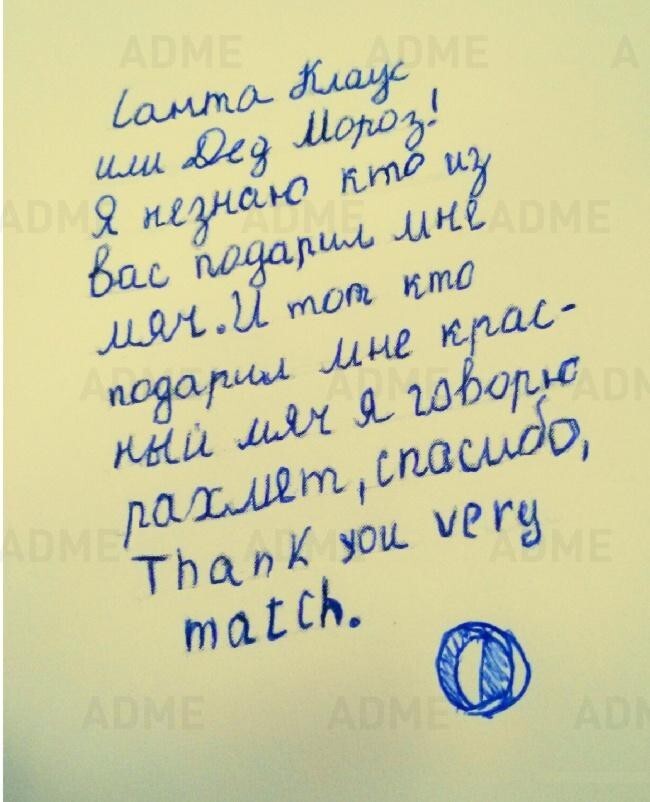 Санта Клаус
или Дед Мороз!
Я незнаю кто из
вас подарил мне
мяч. И тот кто
подарил мне крас-
ный мяч я говорю
рахмет, спасибо,
Thank you very
match.
ADME ADME A
ADME ADME ADME
ADME ADME ADM
ADME ADME ADME
ADME ADME ADM